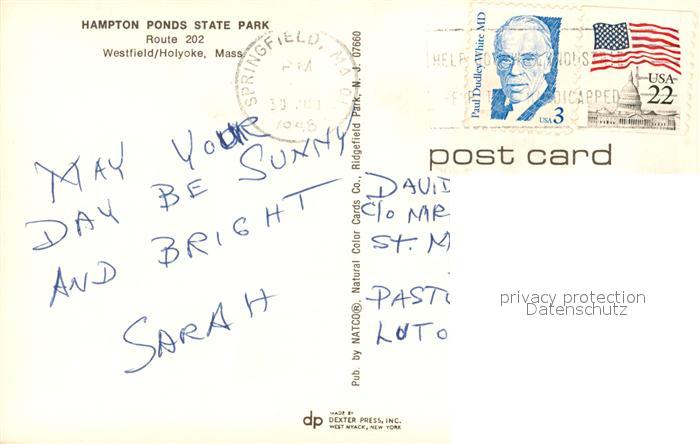 HAMPTON PONDS STATE PARK
Route 202
Westfield/Holyoke, Mass.
SPRINGFIELD, MA
PM
30
Paul Dudley White MD
USA 3
USA
22
post card
MAY YOUR
DAY BE SUNNY
AND BRIGHT
SARAH
Pub. by NATCO®, Natural Color Cards Co., Ridgefield Park, N. J. 07660
DAVID
C/O MR
ST. M
PASTO
LUTO
privacy protection
Datenschutz
dp
MADE BY
DEXTER PRESS, INC.
WEST NYACK, NEW YORK